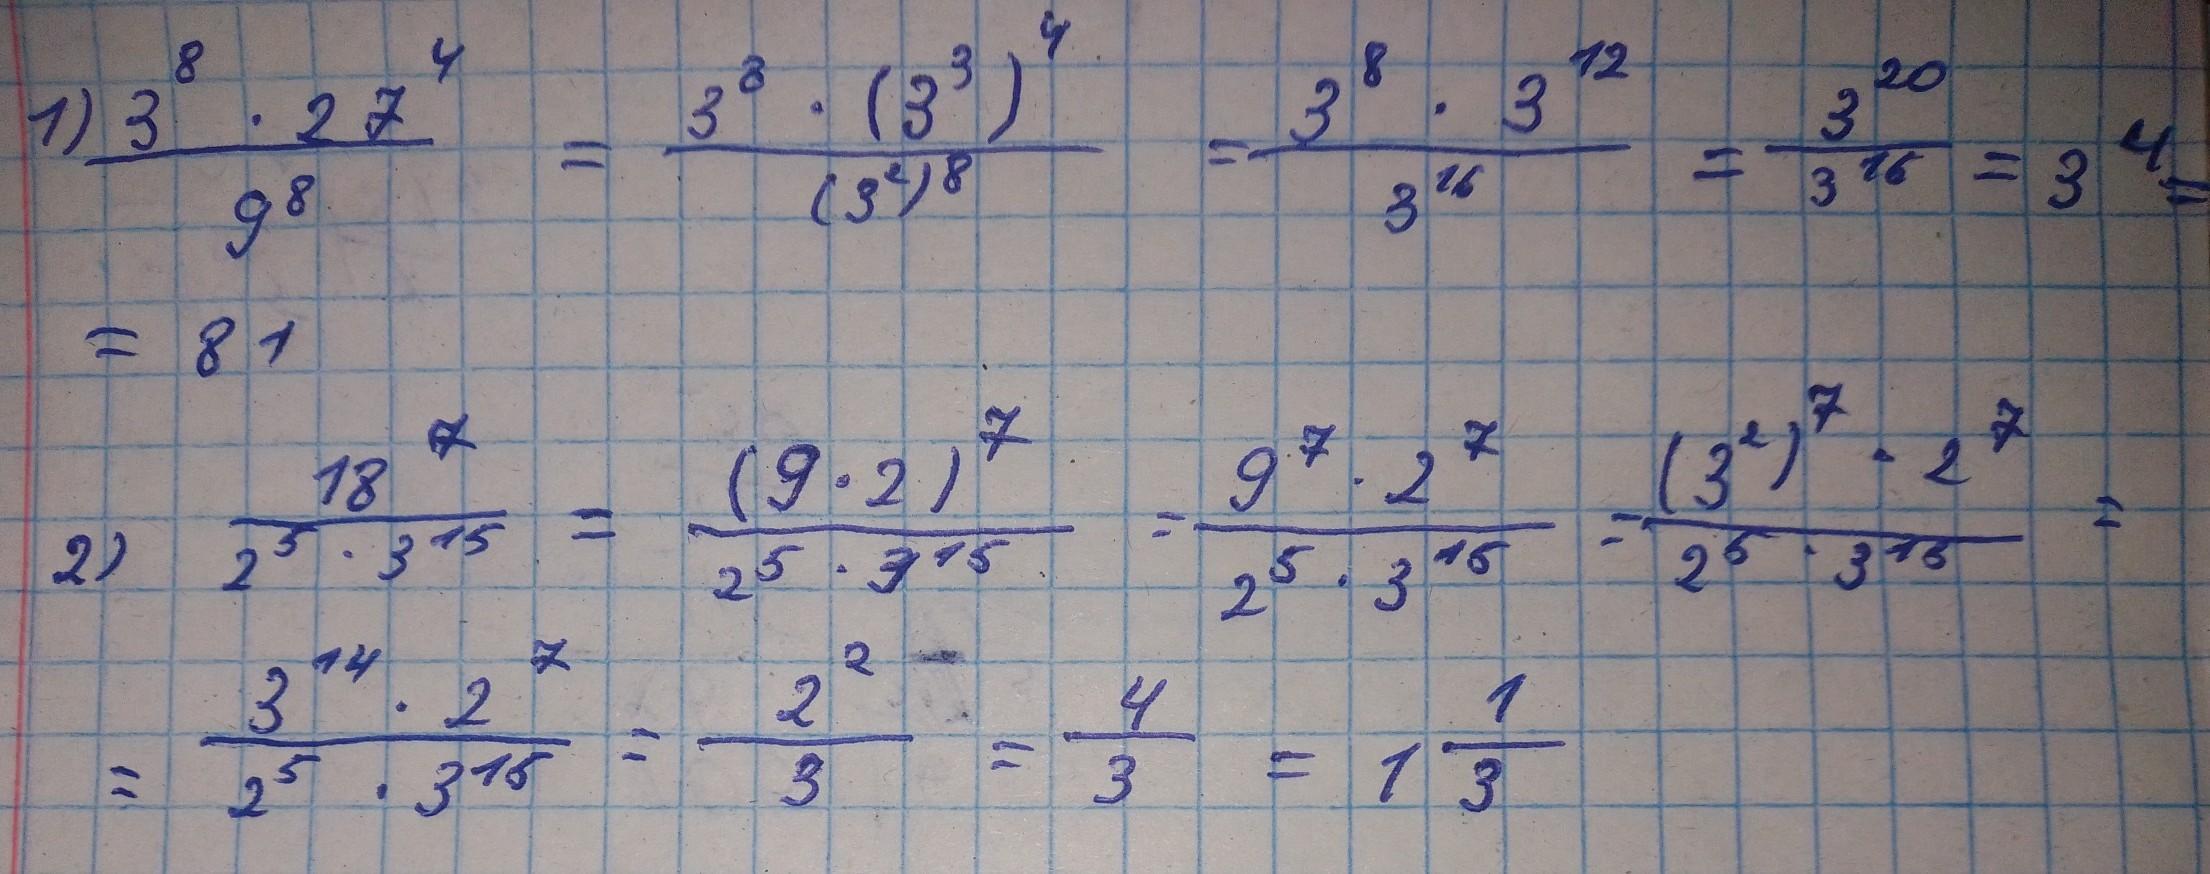 1) \frac{3^8 · 27^4}{9^8} = \frac{3^8 · (3^3)^4}{(3^2)^8} = \frac{3^8 · 3^{12}}{3^{16}} = \frac{3^{20}}{3^{16}} = 3^4 =
= 81
2) \frac{18^7}{2^5 · 3^{15}} = \frac{(9 · 2)^7}{2^5 · 3^{15}} = \frac{9^7 · 2^7}{2^5 · 3^{15}} = \frac{(3^2)^7 · 2^7}{2^5 · 3^{15}} =
= \frac{3^{14} · 2^7}{2^5 · 3^{15}} = \frac{2^2}{3} = \frac{4}{3} = 1 \frac{1}{3}